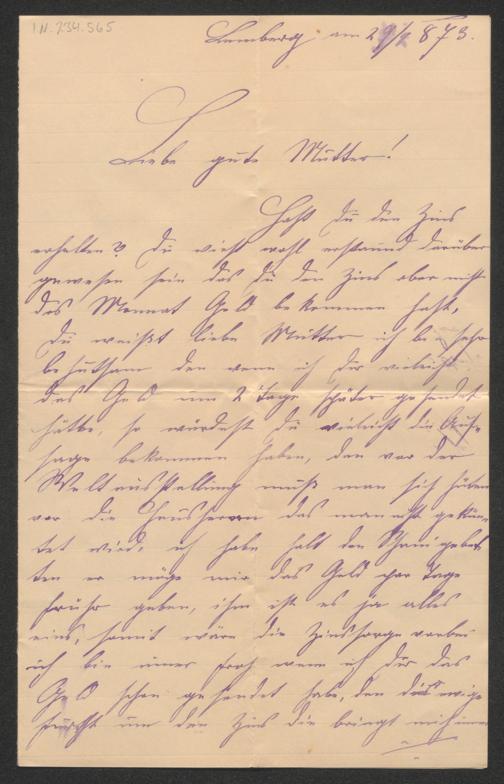 I.N. 234.565
Lemberg am 29/1 873.
Liebe gute Mutter!
Hast Du den Zins
erhalten? Du wirst wohl erstaunt darüber
gewesen sein das Du den Zins aber nicht
das Monnat Geld bekommen hast,
Du weißt liebe Mutter ich bin sehr
behutsam den wenn ich Dir vieleicht
das Geld um 2 Tage später gesendet
hätte, so würdest Du vieleicht die Auf-
sage bekommen haben, den vor der
Weltausstellung muß man sich hüten
vor die Hausherren das man nicht gekün-
tet wird, ich habe halt den gebet-
ten er möge mir das Geld par Tage
früher geben, ihm ist es ja alles
eins, somit wäre die Zinssorge vorbei
ich bin immer froh wenn ich Dir das
Geld schon gesendet habe, den das ewige
um den Zins die bringt mich immer